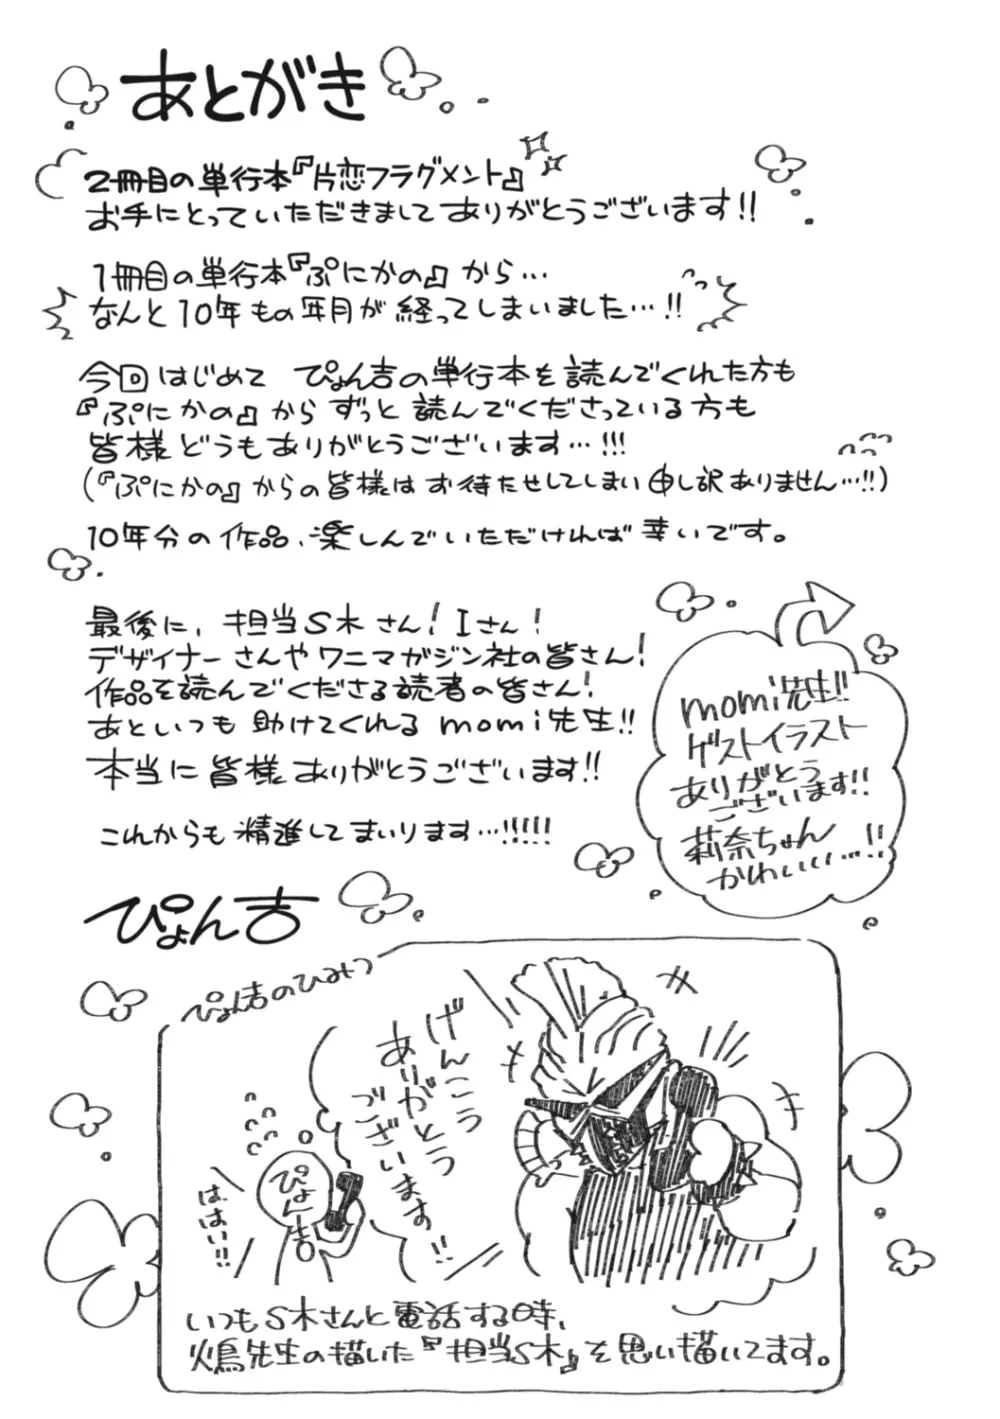 あとがき
2冊目の単行本『片恋フラグメント』
お手にとっていただきましてありがとうございます!!
1冊目の単行本『ぷにかの』から…
なんと10年もの年月が経ってしまいました…!!
今回はじめて ぴょん吉の単行本を読んでくれた方も
『ぷにかの』からずっと読んでくださっている方も
皆様どうもありがとうございます…!!!
(『ぷにかの』からの皆様はお待たせしてしまい申し訳ありません…!!)
10年分の作品、楽しんでいただければ幸いです。
最後に、担当S木さん!Iさん!
デザイナーさんやワニマガジン社の皆さん!
作品を読んでくださる読者の皆さん!
あといつも助けてくれるmomi先生!!
本当に皆様ありがとうございます!!
これからも精進してまいります…!!!!!
momi先生!!
ゲストイラスト
ありがとう
ございます!!
莉奈ちゃん
かわいい…!!
ぴょん吉
ぴょん吉のひみつ
げんこう
ありがとう
ございます!!
ぴょん吉
はっはい!!
いつもS木さんと電話する時、
火鳥先生の描いた『担当S木』を思い描いてます。